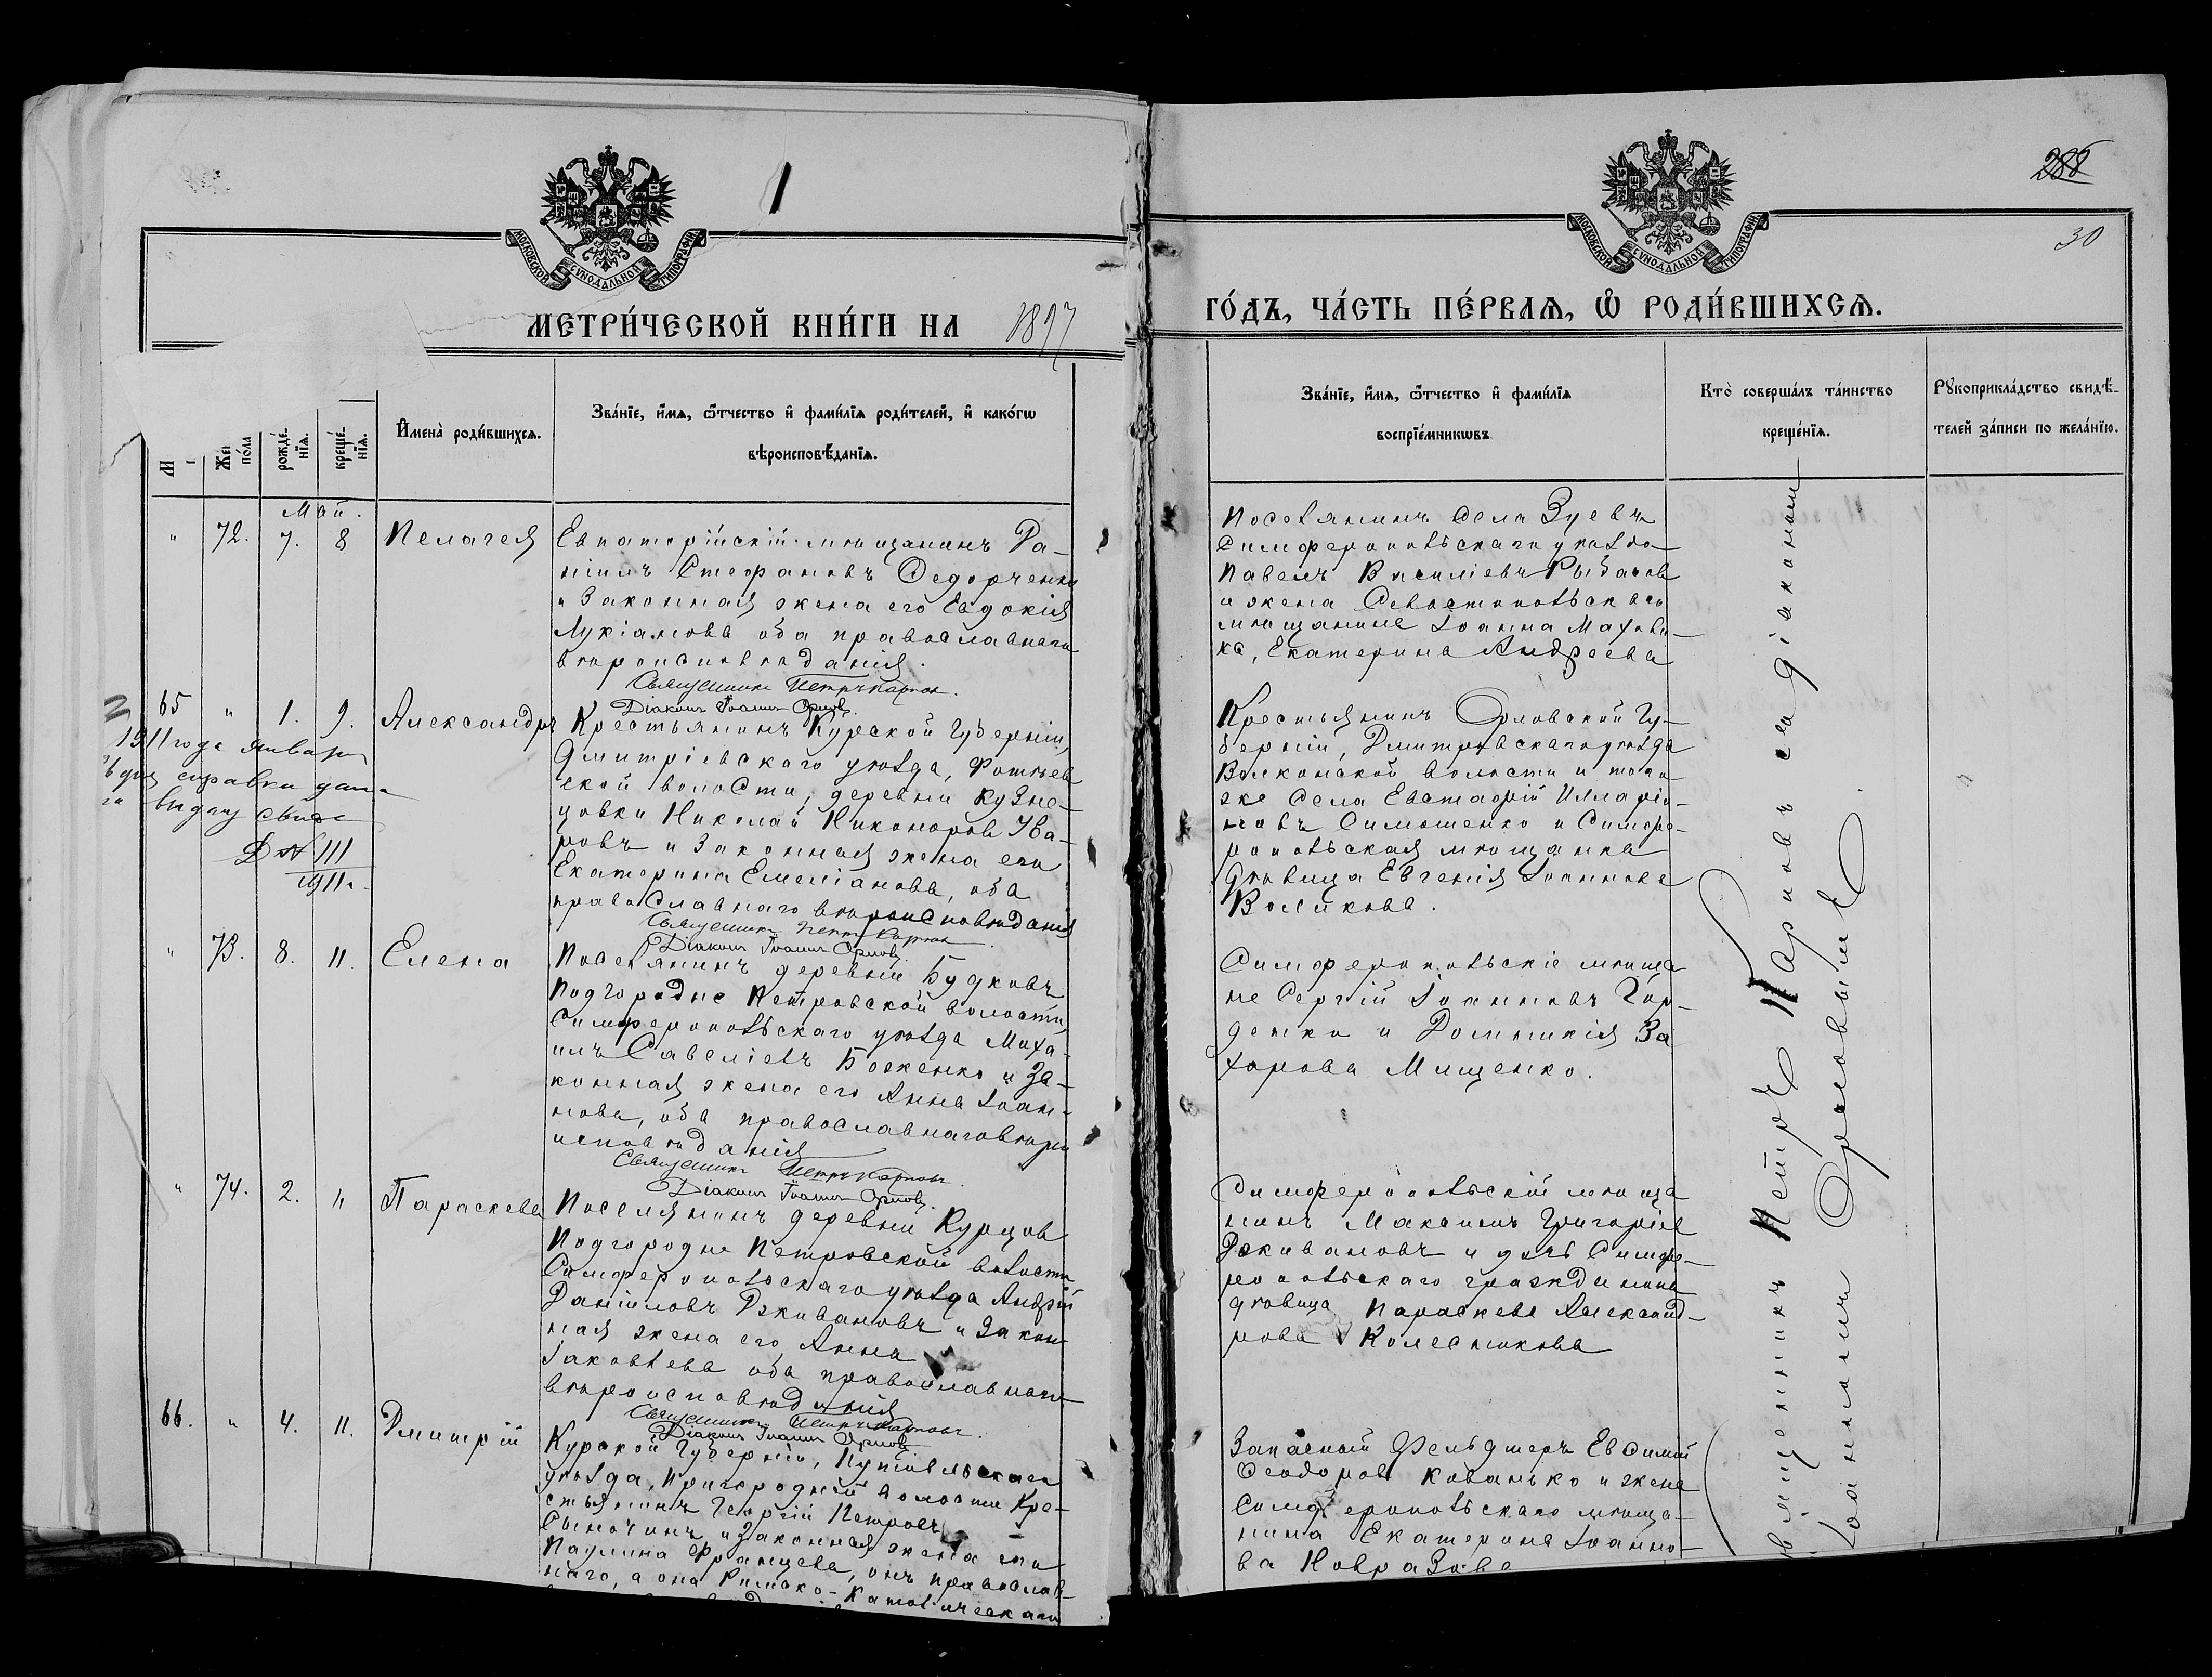 288
30
МОСКОВСКОЙ СѴНОДАЛЬНОЙ ТИПОГРАФІИ
МОСКОВСКОЙ СѴНОДАЛЬНОЙ ТИПОГРАФІИ
МЕТРИ́ЧЕСКОЙ КНИ́ГИ НА 1897
ГО́ДЪ, ЧА́СТЬ ПЕ́РВАѦ, Ѽ РОДИ́ВШИХСѦ.
М
Жен
по́ла
рожде́-
нїѧ.
креще́-
нїѧ.
И҆мена̀ роди́вшихсѧ.
Зва́нїе, и҆́мѧ, ѻ҆́тчество и҆ фами́лїѧ роди́телей, и҆ како́гѡ
вѣроисповѣ́данїѧ.
Зва́нїе, и҆́мѧ, ѻ҆́тчество и҆ фами́лїѧ
воспрїе́мникѡвъ
Кто̀ соверша́лъ та́инство
креще́нїѧ.
Рꙋкоприкла́дство свидѣ́-
телей за́писи по жела́нїю.
Май.
" 72. 7. 8 Пелагея
Евпаторійскій мѣщанинъ Да-
ніилъ Стефановъ Федорченко
и законная жена его Евдокія
Лукіанова оба православнаго
вѣроисповѣданія.
Священникъ Петръ Карповъ.
Діаконъ Іоаннъ Орловъ.
Поселянинъ села Зуевъ
Симферопольскаго уѣзда
Павелъ Василіевъ Рыбасов
и жена Севастопольскаго
мѣщанина Іоанна
Екатерина Андреева
65 " 1. 9. Александръ
1911 года январ
дня справки дана
выдачу свид
Д № 111
1911 г.
Крестьянинъ Курской Губерніи,
Дмитріевскаго уѣзда, Фатѣев
ской волости, деревни Кузне-
цовки Николай Никоноров Ува-
ровъ и законная жена его
Екатерина Емеліанова, оба
православнаго вѣроисповѣданія
Священникъ Петръ Карповъ.
Діаконъ Іоаннъ Орловъ.
Крестьянинъ Орловской Гу-
берніи, Дмитровскаго уѣзда
Волконской волости и того
же села Евстафій Илларіо-
новъ Симошенко и Симфе-
ропольская мѣщанка
дѣвица Евгенія Іоаннова
Воликова.
" 73. 8. 11. Елена
Поселянинъ деревни Будковъ
Подгородне Петровской волости,
Симферопольскаго уѣзда Миха-
илъ Савеліевъ Боженко и за-
конная жена его Анна Іоан-
нова, оба православнаго вѣро
исповѣданія
Священникъ Петръ Карповъ.
Діаконъ Іоаннъ Орловъ.
Симферопольскіе мѣща
не Сергій Іоанновъ Гор-
денко и Домникія За
харова Мищенко.
" 74. 2. " Параскева
Поселянинъ деревни Курцов
Подгородне Петровской волости
Симферопольскаго уѣзда Андрей
Даніиловъ Дживановъ и закон
ная жена его Анна
Іаковлева оба православнаго
вѣроисповѣданія
Священникъ Петръ Карповъ.
Діаконъ Іоаннъ Орловъ
Симферопольскій мѣща
нинъ Максимъ Григоріев
Дживановъ и дочь Симфе-
ропольскаго гражданина
дѣвица Параскева Александ-
рова Колесникова
66. " 4. 11. Дмитрій
Курской Губерніи, Путивльскаго
уѣзда, Пригородней волости Кре-
стьянинъ Георгій Петровъ
Сыночинъ и законная жена его
Паулина Францева, онъ православ-
наго, а она Римско-Католическаго
Запасный Фельдшеръ Евфимій
Феодоровъ Кованько и жена
Симферопольскаго мѣща-
нина Екатерина Іоанно-
ва
Священникъ Петръ Карповъ съ діакономъ
Іоанномъ Орловымъ.